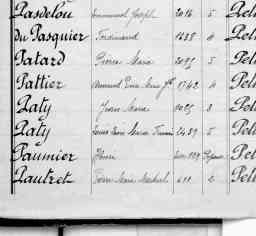 Pasdelou Emmanuel Joseph 2016 5 Pel
Du Pasquier Ferdinand 1238 4 Pel
Patard Pierre Marie 2095 5 Pel
Pattier Armand Marie 1742 4 Pel
Paty Jean Marie 9025 3 Pel
Paty Louis Marie 2489 5 Pel
Paumier Henri Pel
Pautret Pierre Marie 411 2 Pel